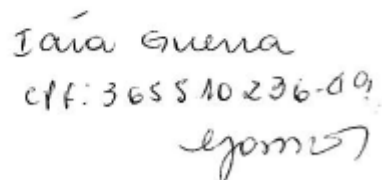 Iaía Guerra
cpf: 365510236-09